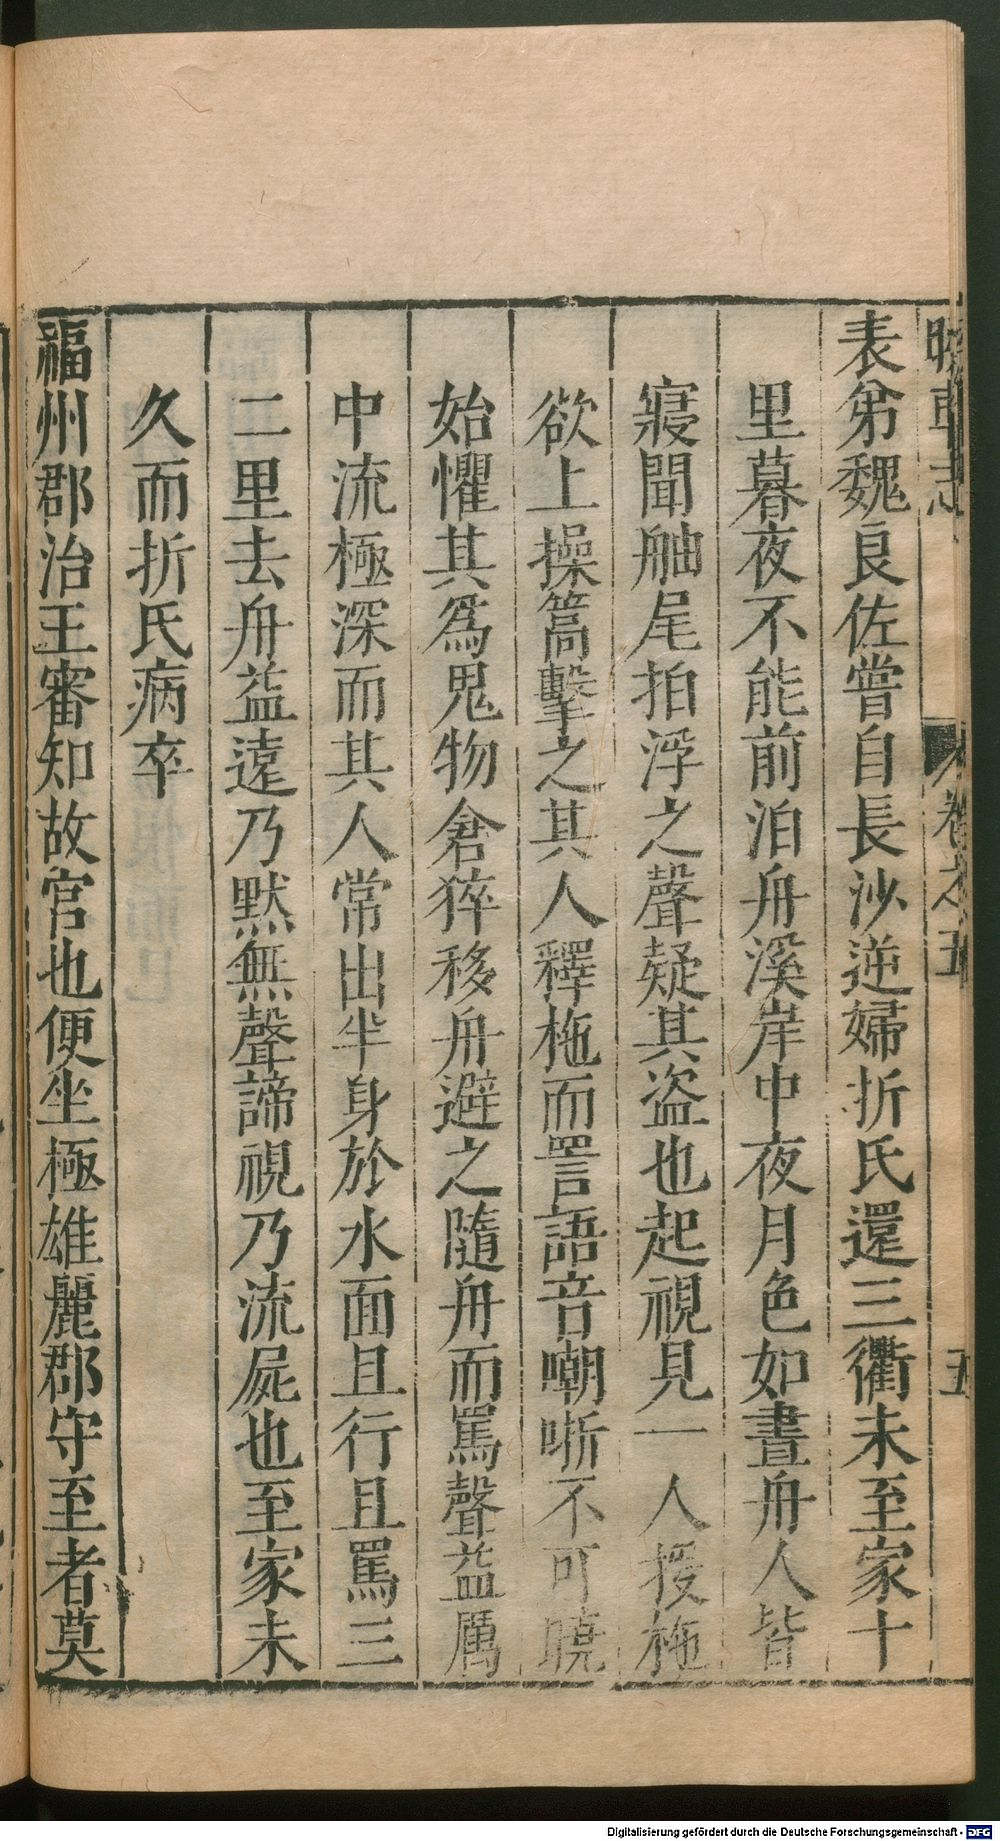 睽車志
卷之五
五
表弟魏良佐嘗自長沙逆婦折氏還三衢未至家十
里暮夜不能前泊舟溪岸中夜月色如晝舟人皆
寢聞舳尾拍浮之聲疑其盗也起視見一人援柂
欲上操篙擊之其人釋柂而詈語音嘲哳不可曉
始懼其爲鬼物倉猝移舟避之隨舟而罵聲益厲
中流極深而其人常出半身於水面且行且罵三
二里去舟益遠乃默無聲諦視乃流屍也至家未
久而折氏病卒
福州郡治王審知故宫也便坐極雄麗郡守至者莫
Digitalisierung gefördert durch die Deutsche Forschungsgemeinschaft - DFG